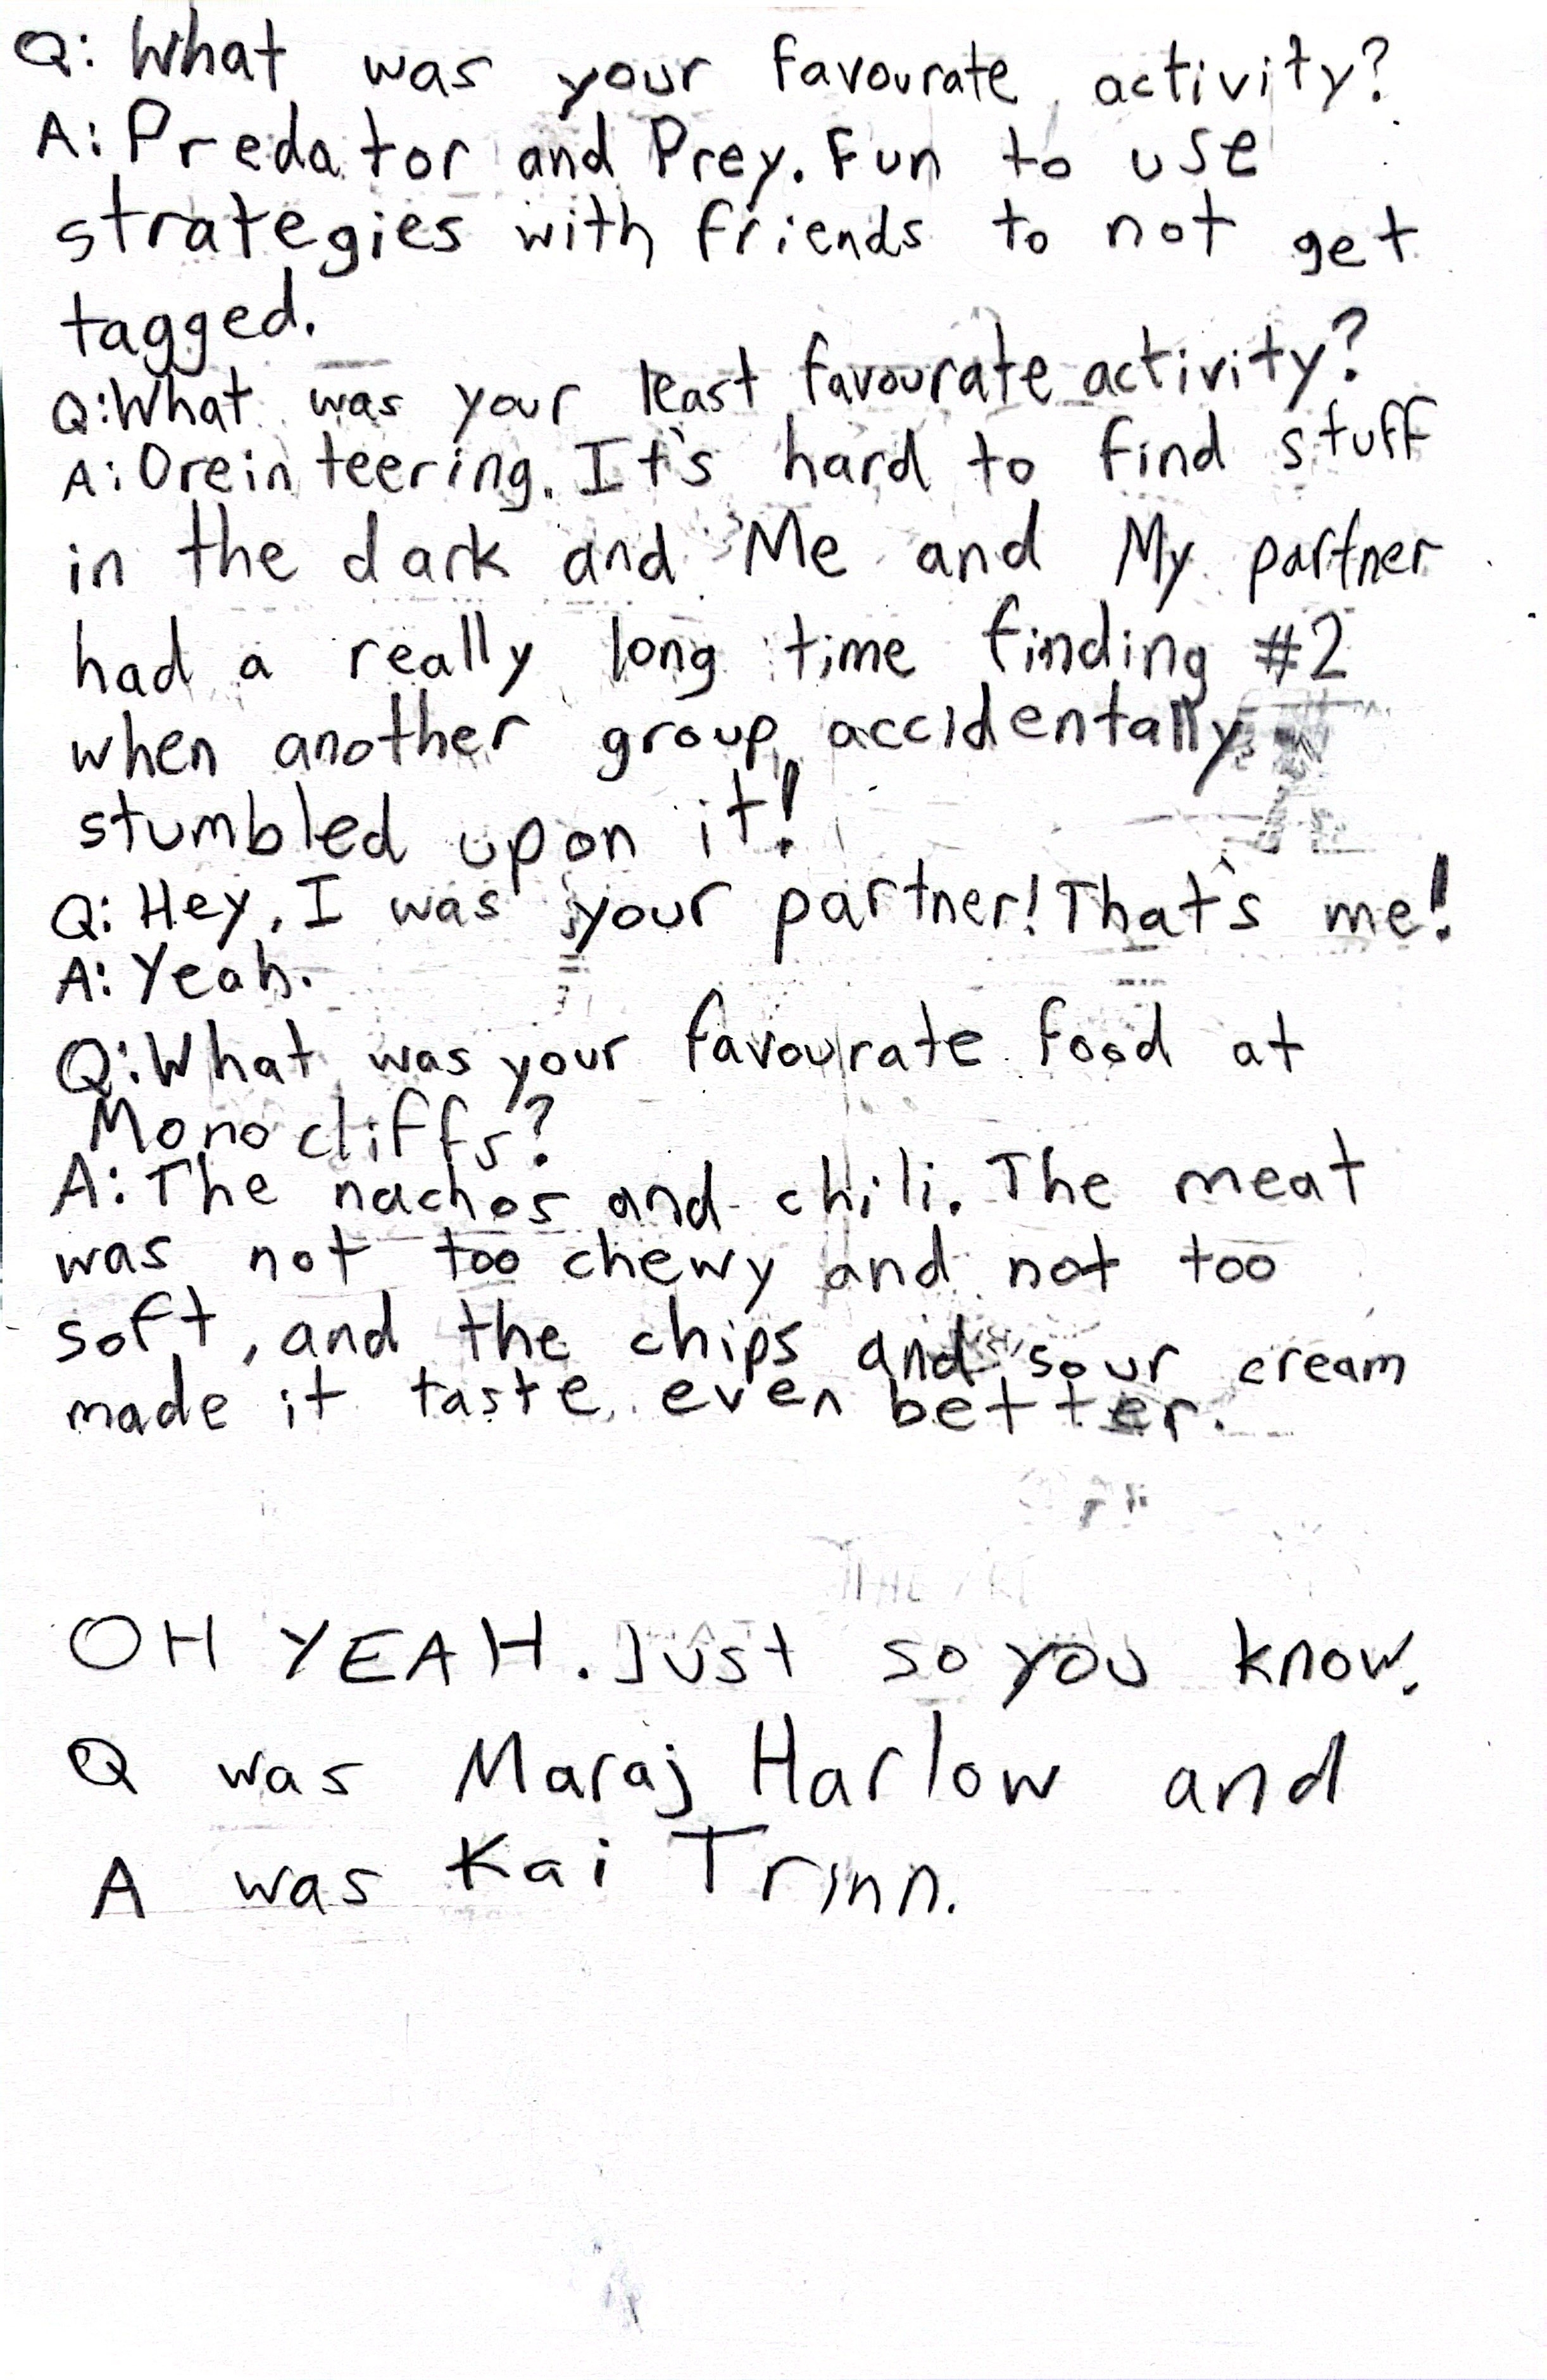 Q: What was your favourate activity?
A: Predator and Prey. Fun to use
strategies with friends to not get
tagged.
Q: What was your least favourate activity?
A: Oreinteering. It's hard to find stuff
in the dark and Me and My partner
had a really long time finding #2
when another group accidentally
stumbled upon it!
Q: Hey, I was your partner! That's me!
A: Yeah.
Q: What was your favourate food at
Mono cliffs?
A: The nachos and chili. The meat
was not too chewy and not too
soft, and the chips and sour cream
made it taste even better.
OH YEAH. Just so you know.
Q was Maraj Harlow and
A was Kai Trinn.